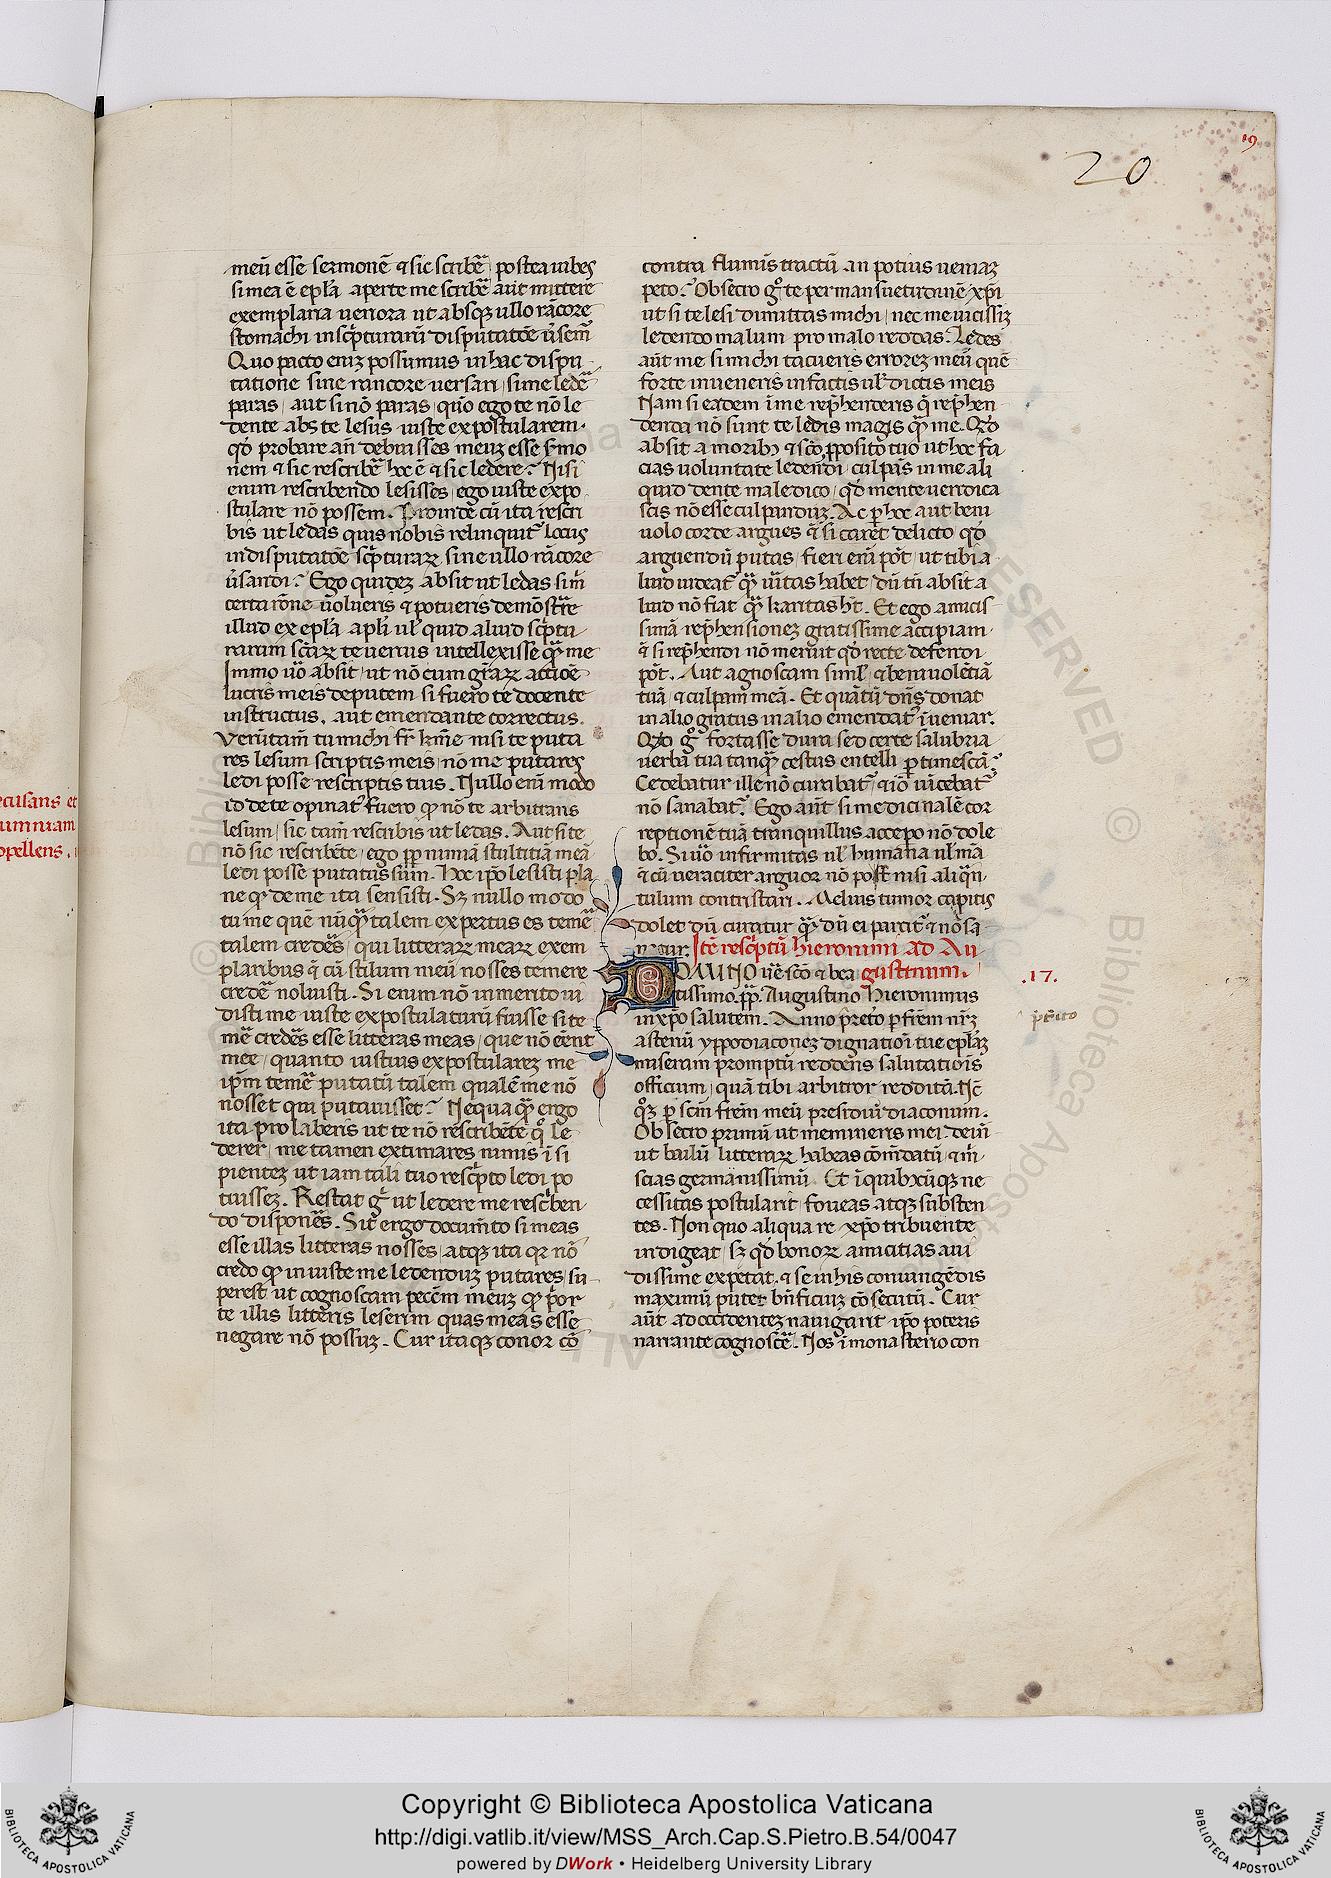 20
19
meū esse sermonē ⁊ sic scribē᷑ / postea iubes
si mea ē epl'a aperte me scribē᷑ aūt mittere
exemplaria ueriora ut absqꝫ ullo rācore
stomachi in sc̄pturarū disputatōe ūsem᷑
Quo pacto eniꝫ possumus in hac dispu
tatione sine rancore uersari / si me ledē᷑
paras / aut si nō paras / quō ego te nō le
dente abs te lesus iuste expostularem·
qd̄ probare an̄ debuisses meuꝫ esse s᷑mo
nem ⁊ sic rescribē᷑ hoc ē ⁊ sic ledere? Nisi
enim rescribendo lesisses / ego iuste expo
stulare nō possem. Proinde cū ita rescri
bis ut ledas quis nobis relinquit᷑ locus
in disputatōe sc̄pturaꝝ sine ullo rācore
ūsandi? Ego quideꝫ absit ut ledas si m̄
certa rōne uolueris ⁊ potueris demōstrē
illud ex epl'a apl'i ul' quid aliud sc̄ptu
rarum sctāꝝ te uerius intellexisse qꝫ me
Immo uō absit / ut nō cum gr̄aꝝ actiōe
lucris meis deputem si fuero te docente
instructus. aut emendante correctus.
Verūtam̄ tu michi fr̄ k͞me nisi te puta
res lesum scriptis meis / nō me putares
ledi posse rescriptis tuis. Nullo enī modo
id de te opinat᷑ fuero qꝫ nō te arbitrans
lesum / sic tam̄ rescribis ut ledas. Aut si te
nō sic rescribēte / ego pp̄ nimiā stultitiā meā
ledi posse putatus sum. Hoc ip̄o lesisti pla
ne qꝫ de me ita sensisti. Sꝫ nullo modo
tu me quē nūqꝫ talem expertus es temē᷑
talem crederēs / qui litteraꝝ meaꝝ exem
plaribus q̄ cū stilum meū nosses temere
credē᷑ noluisti. Si enim nō inmerito ui
disti me iuste expostulaturū fuisse si te
mē᷑ crederēs esse litteras meas / que nō eēnt
mee / quanto iustius expostulareꝫ me
ip̄m temē᷑ putatū talem qualē me nō
nosset qui putauisset? Nequaqꝫ ergo
ita prolaberis ut te nō rescribēte q° le
derer / me tamen extimares nimis īsi
pienteꝫ ut iam tali tuo resc̄pto ledi po
tuisseꝫ. Restat g° ut ledere me resc̄ben
do disponerēs. Si c̄to documēto si meas
esse illas litteras nosses / atqꝫ ita qꝛ nō
credo qꝫ iniuste me ledenduꝫ putares / su
perest ut cognoscam pecc̄m meuꝫ qꝫ prior
te illis litteris leserim quas meas esse
negare nō possuꝫ. Cur itaqꝫ conor cō
contra flumīs tractū an potius ueniaꝫ
peto? Obsecro g° te per mansuetudinē xp̄i
ut si te lesi dimittas michi / nec me uicissiꝫ
ledendo malum pro malo reddas. Ledes
aūt me si michi tacueris erroreꝫ meū quē
forte inueneris in factis ul' dictis meis
Nam si ea dem ī me rep̄henderis q̄ rep̄hen
denda nō sunt te ledis magis qꝫ me. Qd̄
absit a moribꝫ ⁊ sc̄o p̄posito tuo ut hoc fa
cias uoluntate ledendi / culpās in me ali
quid dente maledico / qd̄ mente ueridica
scis nō esse culpanduꝫ. Ac p̱ hoc aut beni
uolo corde argues ⁊ si caret delicto qd̄
arguendū putas / fieri enī pōt / ut tibi a
liud uideat᷑ qꝫ ūitas habet / dū tn̄ absit a
liud nō fiat qꝫ karitas h̄t. Et ego amicis
simā rep̄hensioneꝫ gratissime accipiam·
⁊ si rep̄hendi nō meruit qd̄ recte defendi
pōt. Aut agnoscam simul' ⁊ beniuolētiā
tuā ⁊ culpam meā. Et quātū dn̄s donat
in alio gratus in alio emendat᷑ īueniar.
Qd̄ g° fortasse dura sed certe salubria
uerba tua tanqꝫ cestus entelli p̱timescā?
Cedebatur ille nō curabat᷑ / ⁊ iō uīcebat᷑
nō sanabat᷑. Ego aūt si medicinalē cor
reptionē tuā tranquillus accepo nō dole
bo. Si uō infirmitas ul' humana ul' mīa
⁊ cū ueraciter arguor nō pōt nisi aliqn̄
tulum contristari. Melius tumor capitis
dolet dū curatur qꝫ dū ei parcit᷑ ⁊ nō sa
natur. Itē resc̄ptū hieronimi ad Au
gustinum.
DOMINO uere sc̄o ⁊ bea
tissimo pp̄. Augustino Hieronimus
in xp̄o salutem. Anno p̄rerito p̱ fr̄em nr̄ꝫ
asteriū yppodiaconeꝫ dignatiōi tue ep̄laꝫ
miseram promptū reddens salutatiōis
officium / quā tibi arbitror redditā. Nc̄
q°ꝫ p̱ sc̄m fr̄em meū presidiū diaconum.
Obsecro primū ut memineris mei. dein̄
ut baiulū litteraꝝ habeas cōm̄datū / ⁊ m̄
scias germanissimū. Et ī quibꝫcūqꝫ ne
cessitas postularit / foueas atqꝫ substen
tes. Non quo aliqua re xp̄o tribuente
indigeat / sꝫ qd̄ bonoꝝ amicitias aui
dissime expetat. ⁊ se in his coniungēdis
maximū putet bn̄ficiuꝫ cōsecutū. Cur
aūt ad occidenteꝫ nauigarit ip̄o poteris
narrante cognoscē᷑. Nos ī monasterio con
.17.
p̄t̄ito
ecusans et
umniam
opellens.
Copyright © Biblioteca Apostolica Vaticana
http://digi.vatlib.it/view/MSS_Arch.Cap.S.Pietro.B.54/0047
powered by DWork • Heidelberg University Library
BIBLIOTECA APOSTOLICA VATICANA
BIBLIOTECA APOSTOLICA VATICANA